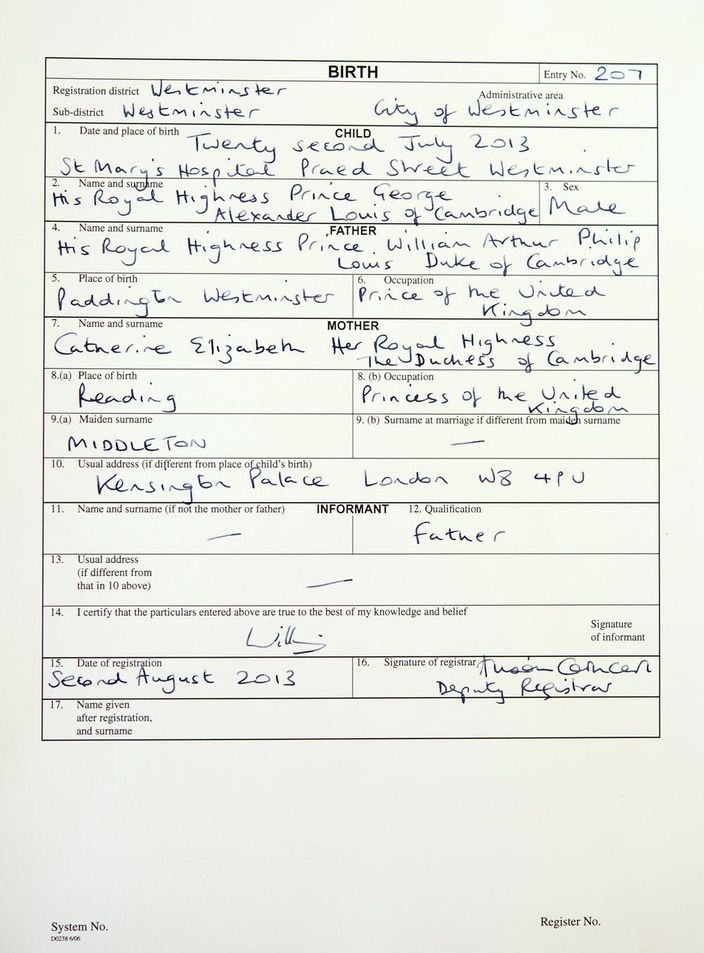 BIRTH Entry No. 207
Registration district Westminster Administrative area
Sub-district Westminster City of Westminster
1. Date and place of birth CHILD
Twenty second July 2013
St Mary's Hospital Praed Street Westminster
2. Name and surname 3. Sex
His Royal Highness Prince George
Alexander Louis of Cambridge Male
4. Name and surname FATHER
His Royal Highness Prince William Arthur Philip
Louis Duke of Cambridge
5. Place of birth 6. Occupation
Paddington Westminster Prince of the United
Kingdom
7. Name and surname MOTHER
Catherine Elizabeth Her Royal Highness
The Duchess of Cambridge
8.(a) Place of birth 8. (b) Occupation
Reading Princess of the United
Kingdom
9.(a) Maiden surname 9. (b) Surname at marriage if different from maiden surname
MIDDLETON —
10. Usual address (if different from place of child's birth)
Kensington Palace London W8 4PU
11. Name and surname (if not the mother or father) INFORMANT 12. Qualification
— Father
13. Usual address
(if different from
that in 10 above) —
14. I certify that the particulars entered above are true to the best of my knowledge and belief
Signature
of informant
15. Date of registration 16. Signature of registrar
Second August 2013
Deputy Registrar
17. Name given
after registration,
and surname
System No. Register No.
D0238 6/06